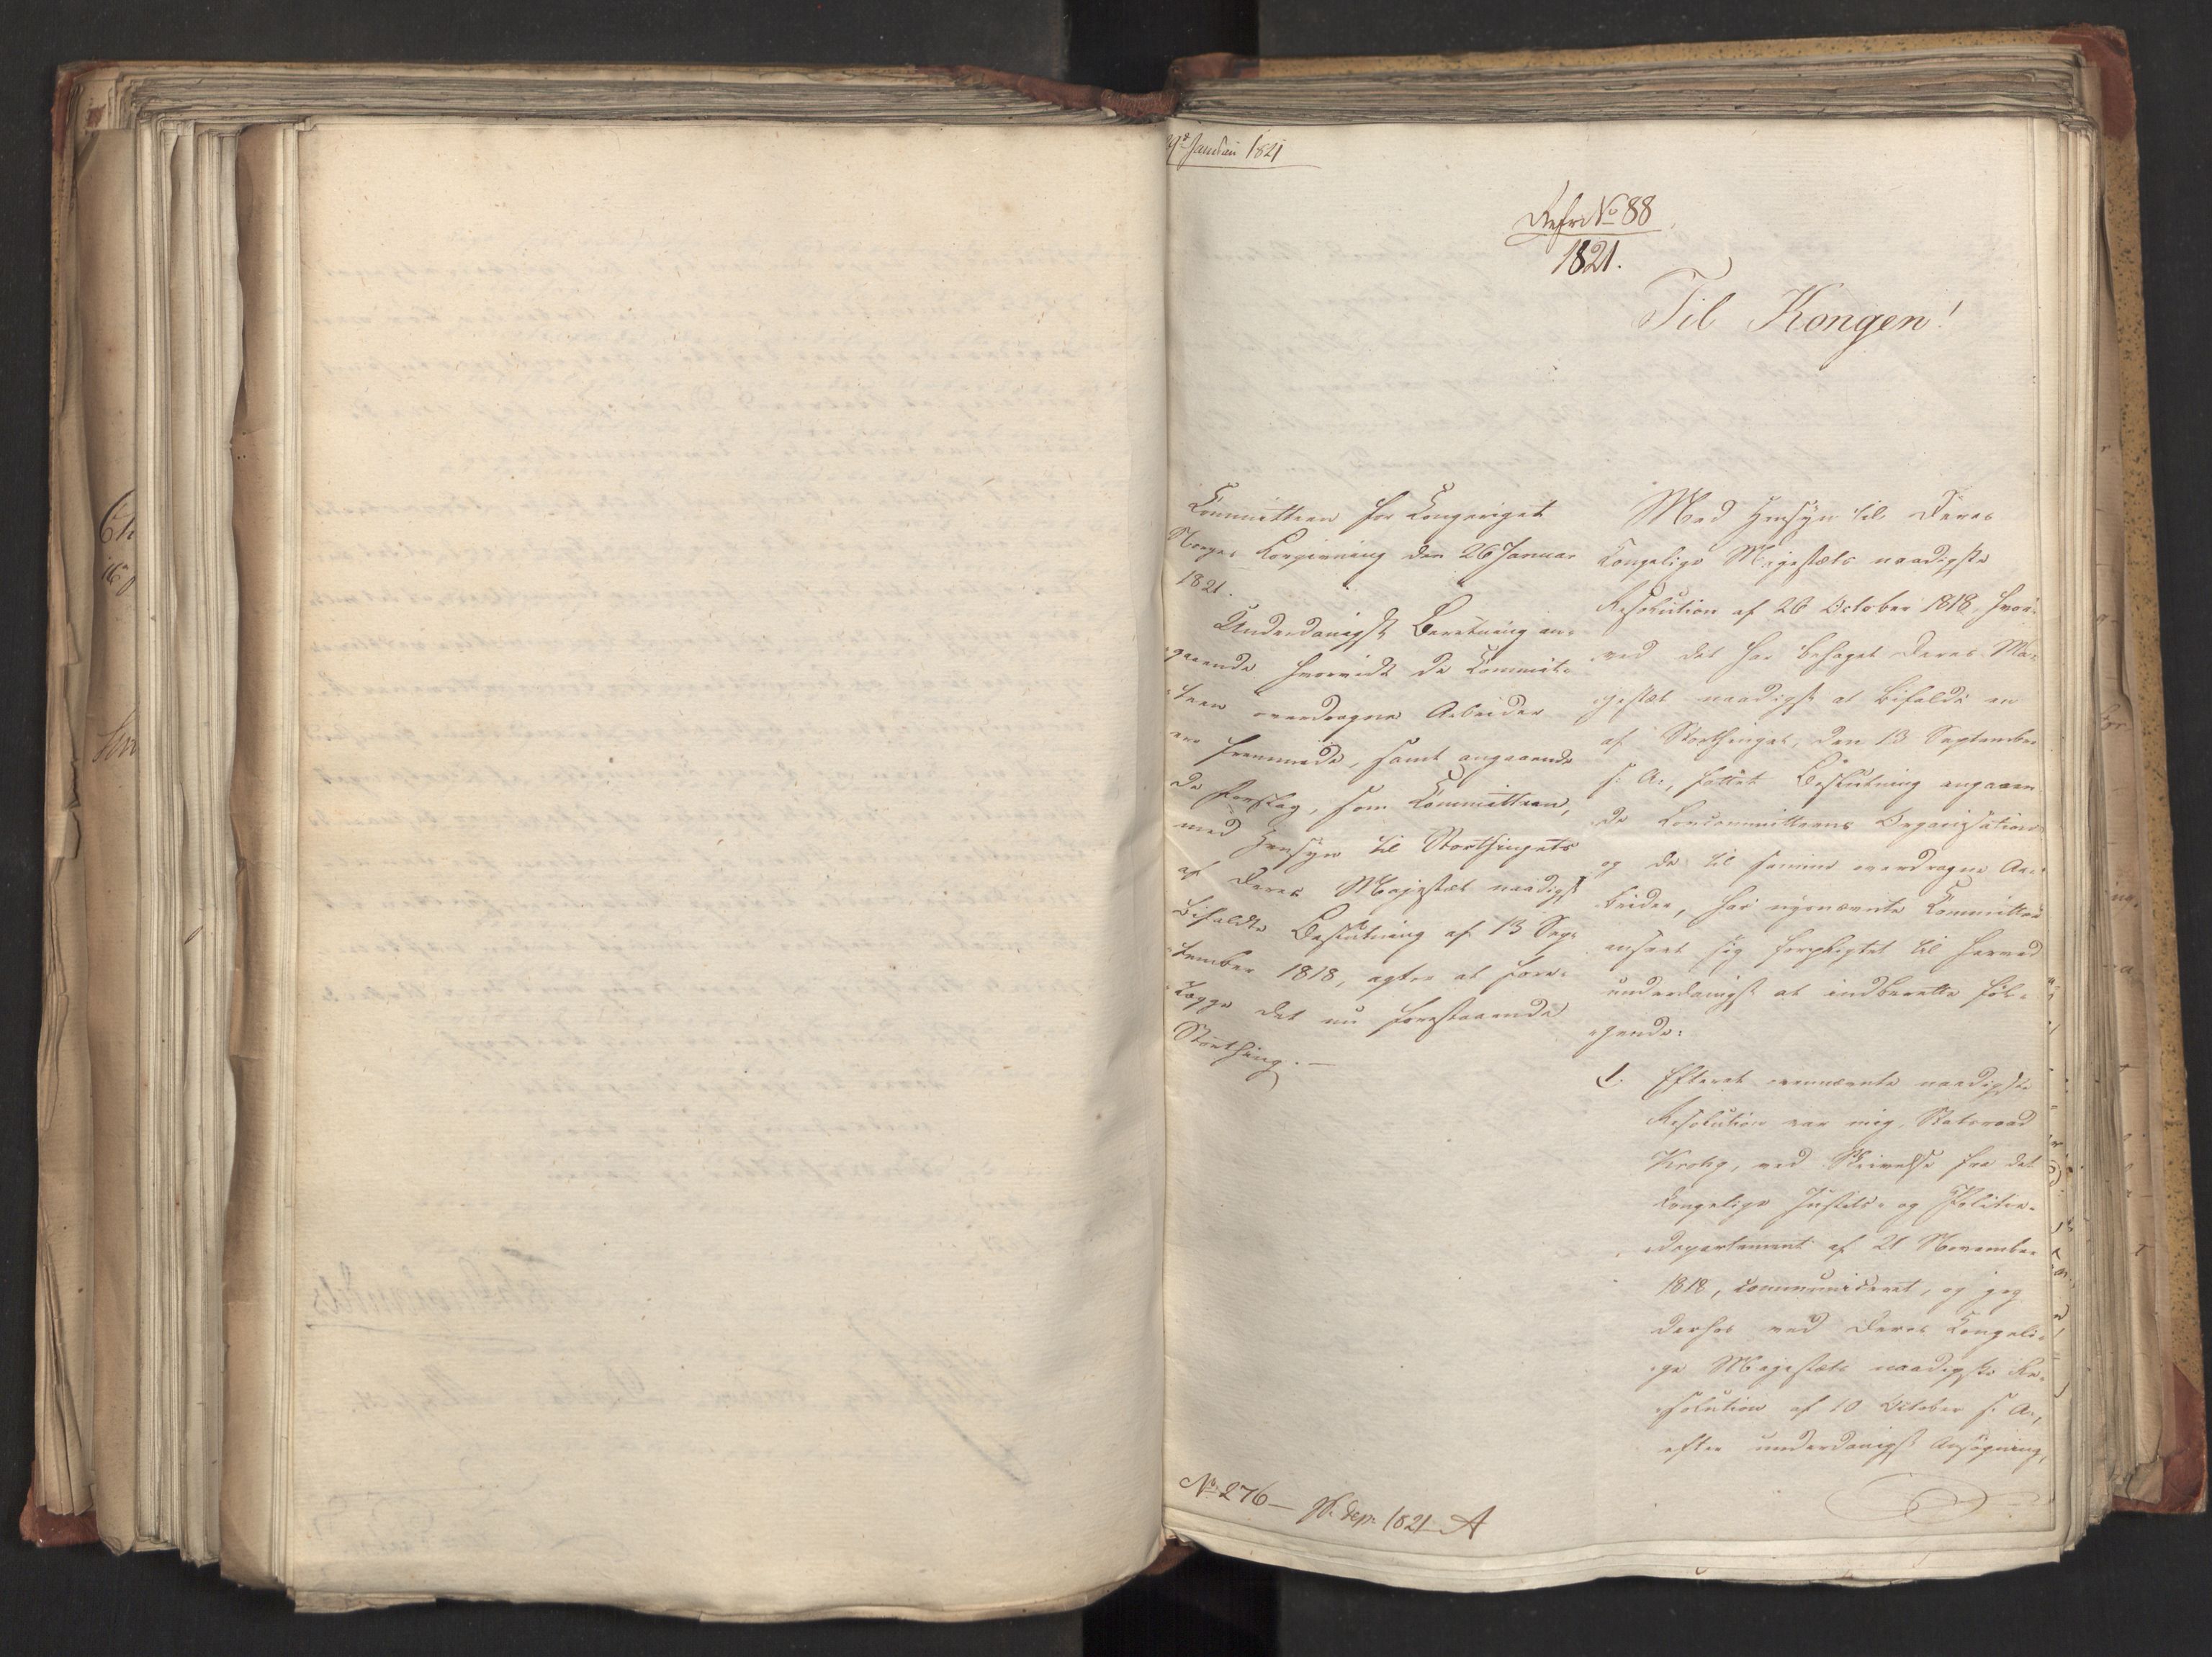 Januari 1821
Refr No 88
1821.
Til Kongen!
Committeen for Kongeriget
Norges Lovgivning den 26 Januar
1821.
Underdanigst Beretning an-
gaaende hvorvidt de Commit-
teen overdragne Arbeider
ere fremmede, samt angaaende
de Forslag, som Committeen,
med Hensyn til Storthingets
af Deres Majestæt naadigst
bifaldte Beslutning af 13 Sep-
tember 1818, agter at fore-
lægge det nu forestaaende
Storthing. —
Med Hensyn til Deres
Kongelige Majestæts naadigste
Resolution af 26 October 1818, hvor-
ved det har behaget Deres Ma-
jestæt naadigst at bifalde en
af Storthinget, den 13 September
s. A., fattet Beslutning angaaen-
de Lovcommitteens Organisation
og de til samme overdragne Ar-
beider, har nysnævnte Committee
anseet sig forpligtet til herved
underdanigst at indberette føl-
gende:
1. Efterat ovennævnte naadigste
Resolution var mig, Statsraad
Krohg, ved Skrivelse fra det
Kongelige Justits- og Politie-
departement af 21 November
1818, communiceret, og jeg
derhos ved Deres Kongeli-
ge Majestæts naadigste Re-
solution af 10 October s. A.,
efter underdanigst Ansøgning,
No 276 — Dep. 1821 A